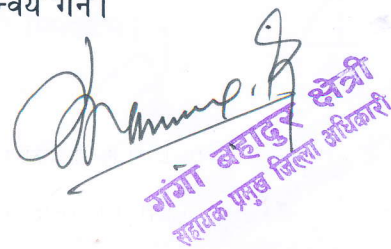 न्वय गर्ने।
गंगा बहादुर क्षेत्री
सहायक प्रमुख जिल्ला अधिकारी